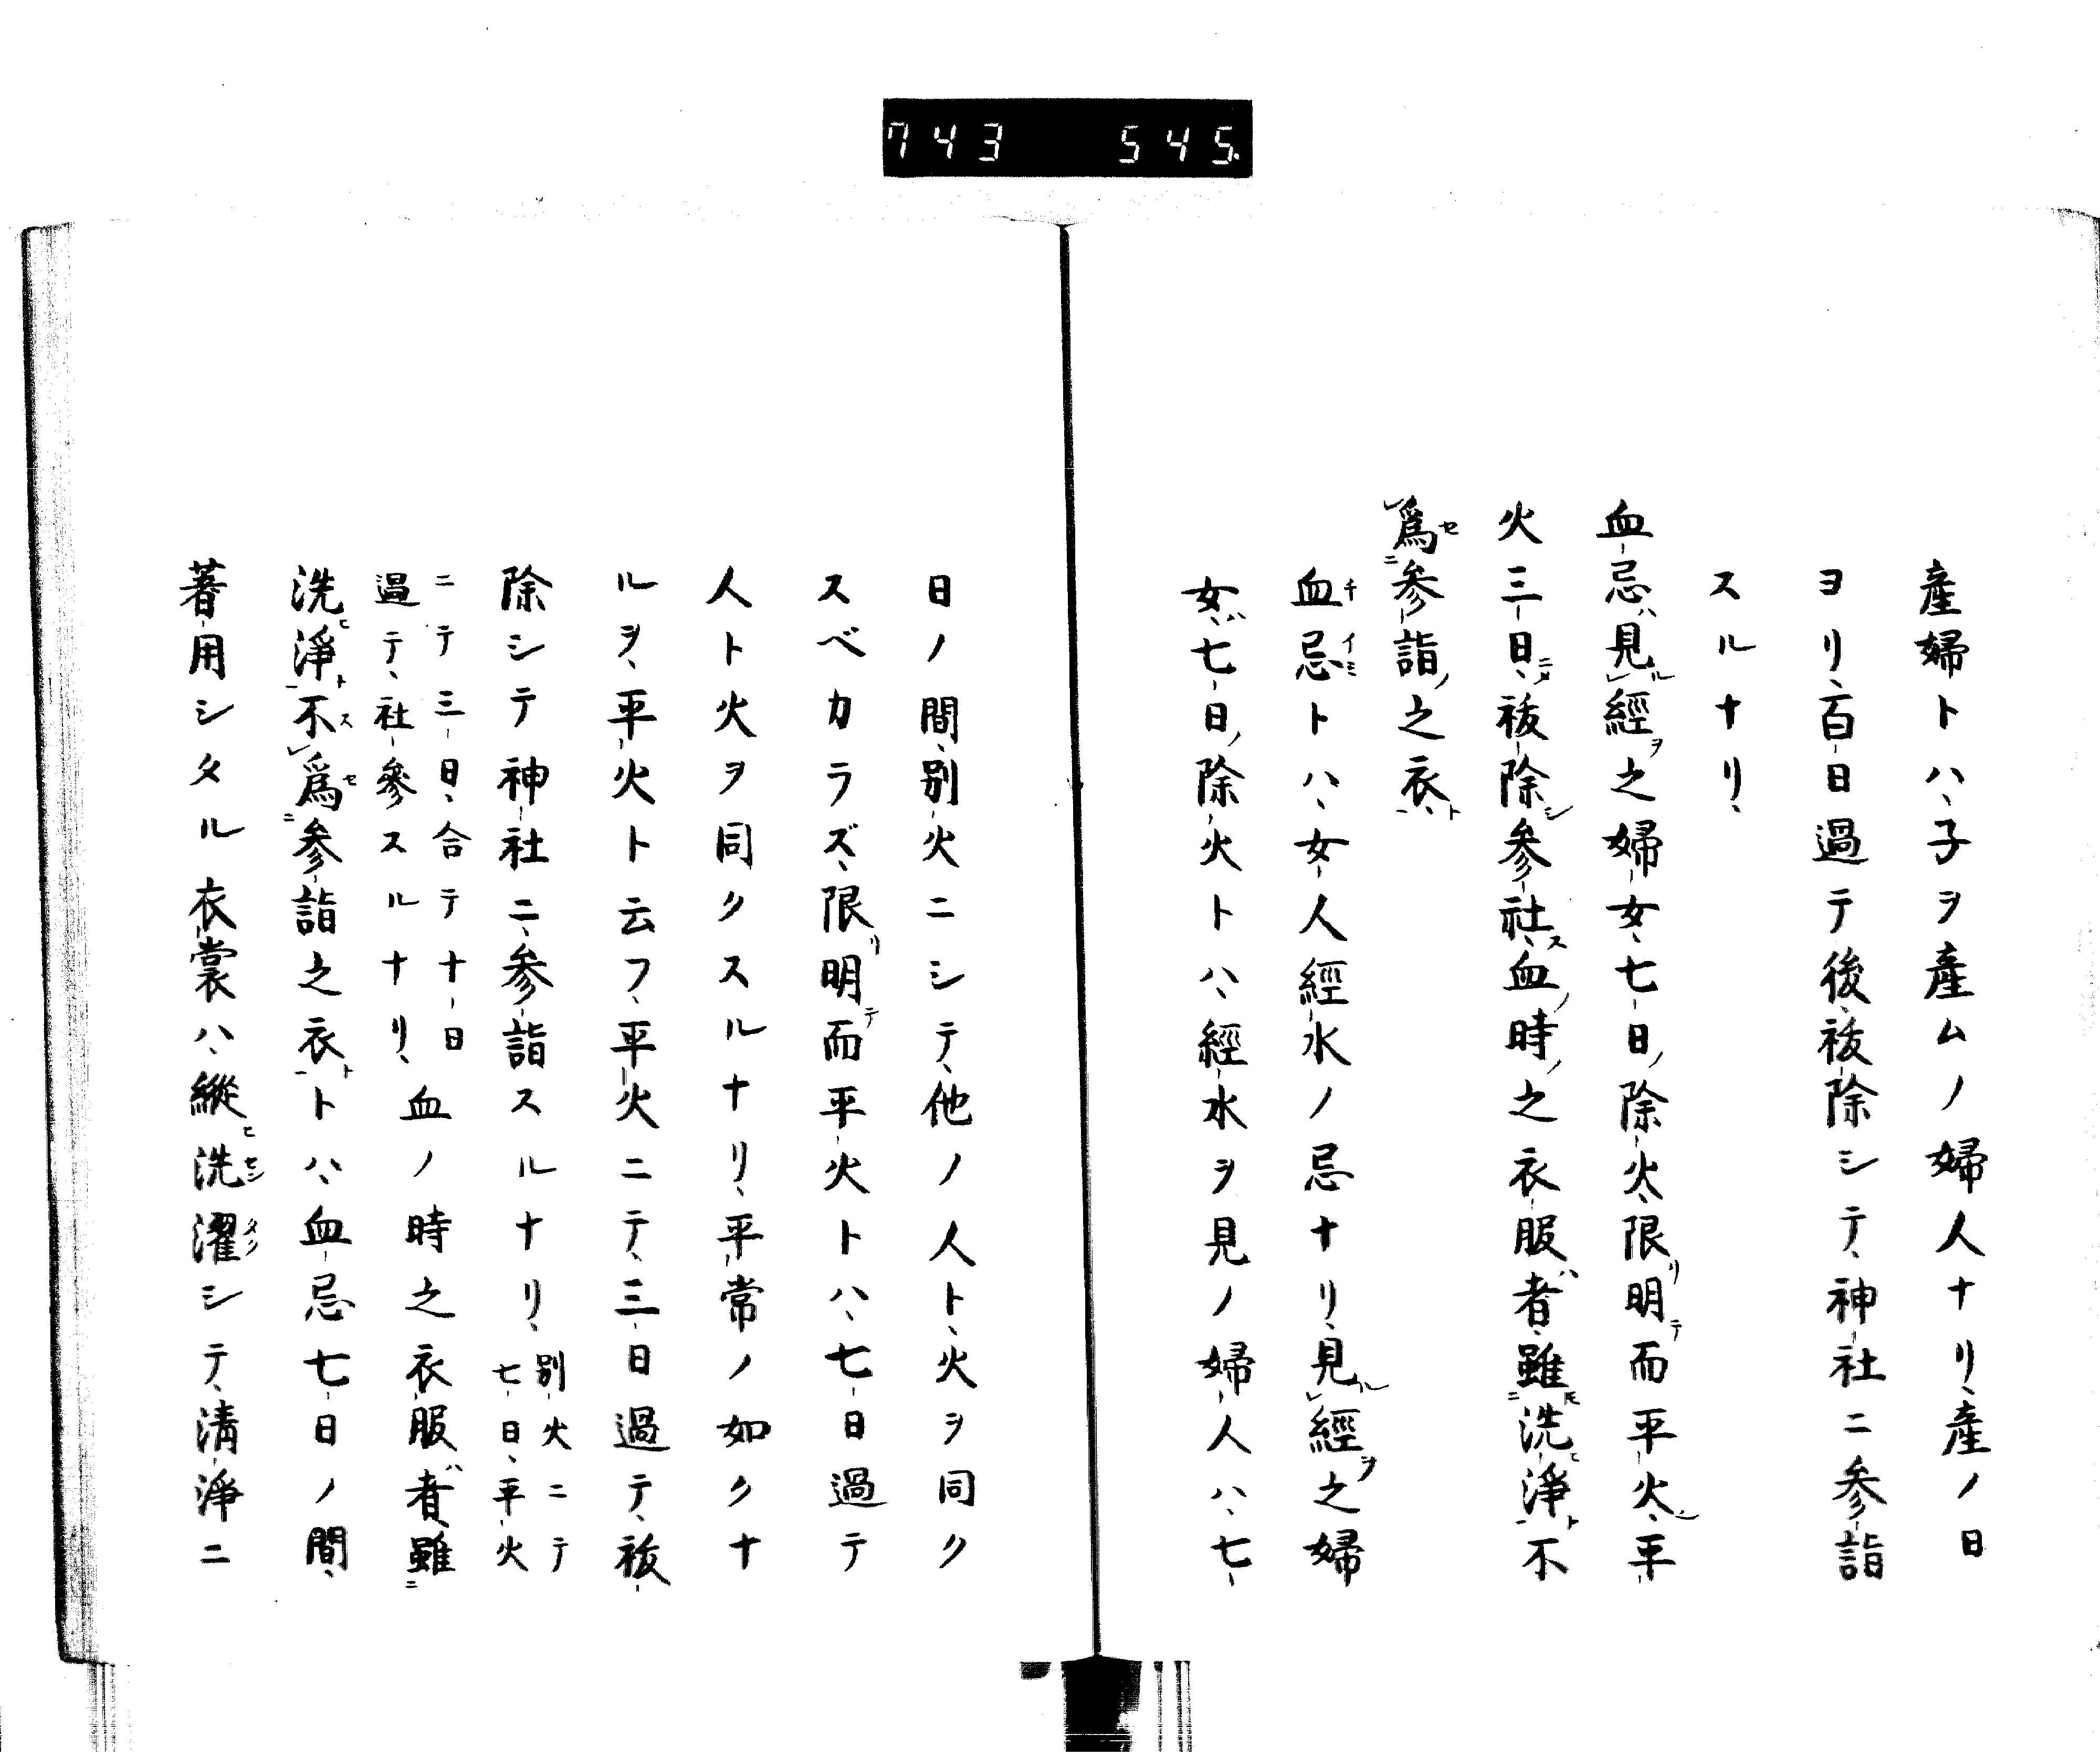 743 545.
産婦トハ、子ヲ産ムノ婦人ナリ、産ノ日
ヨリ、百日過テ後、祓除シテ、神社ニ参詣
スルナリ、
血忌ハ見ル㆑經ヲ之婦女、七日ノ除火、限リ明テ而平火シ、平
火三日ニメ、祓除シ参社ス、血ノ時ノ之衣服ハ者、雖㆓モ洗ヒ淨㆒ト、不
㆑為㆓セ参詣ノ之衣㆒ト、
血忌チイミトハ、女人經水ノ忌ナリ、見ル㆑經ヲ之婦
女ハ、七日ノ除火トハ、經水ヲ見ノ婦人ハ、七
日ノ間、別火ニシテ、他ノ人ト、火ヲ同ク
スベカラズ、限リ明テ而平火トハ、七日過テ
人ト火ヲ同クスルナリ、平常ノ如クナ
ルヲ、平火ト云フ、平火ニテ、三日過テ、祓
除シテ神社ニ、参詣スルナリ、別火ニテ
七日、平火
ニテ三日、合テ十日
過テ、社參スルナリ、血ノ時之衣服ハ者、雖㆓
洗ヒ淨㆒ト、不ス㆑為㆓セ参詣之衣㆒トトハ、血忌七日ノ間、
著用シタル衣裳ハ、縱ヒ洗セン濯タクシテ、淸淨ニ